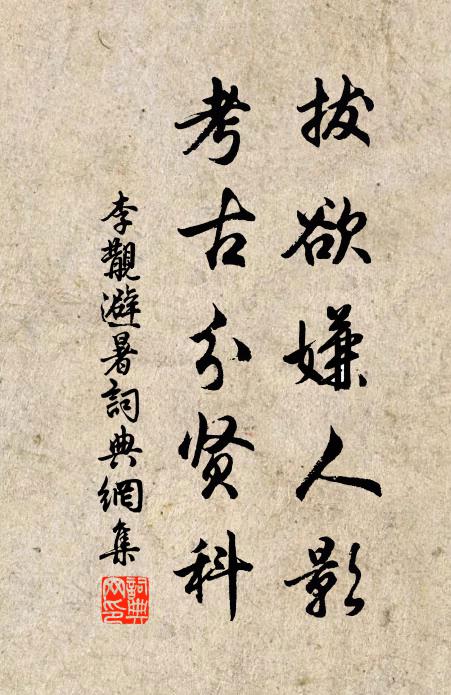 拔欲嫌人影
考古分贤科
李觏避暑詞典網集
詞典
网印